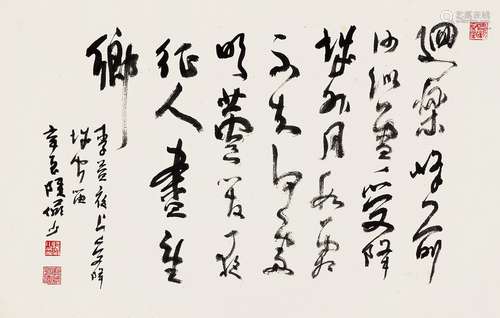 迴樂峰前
沙似雪受降
城外月如霜
不知何處
吹蘆管一夜
征人盡望
鄉
李益夜上受降
城聞笛
辛陸儼少